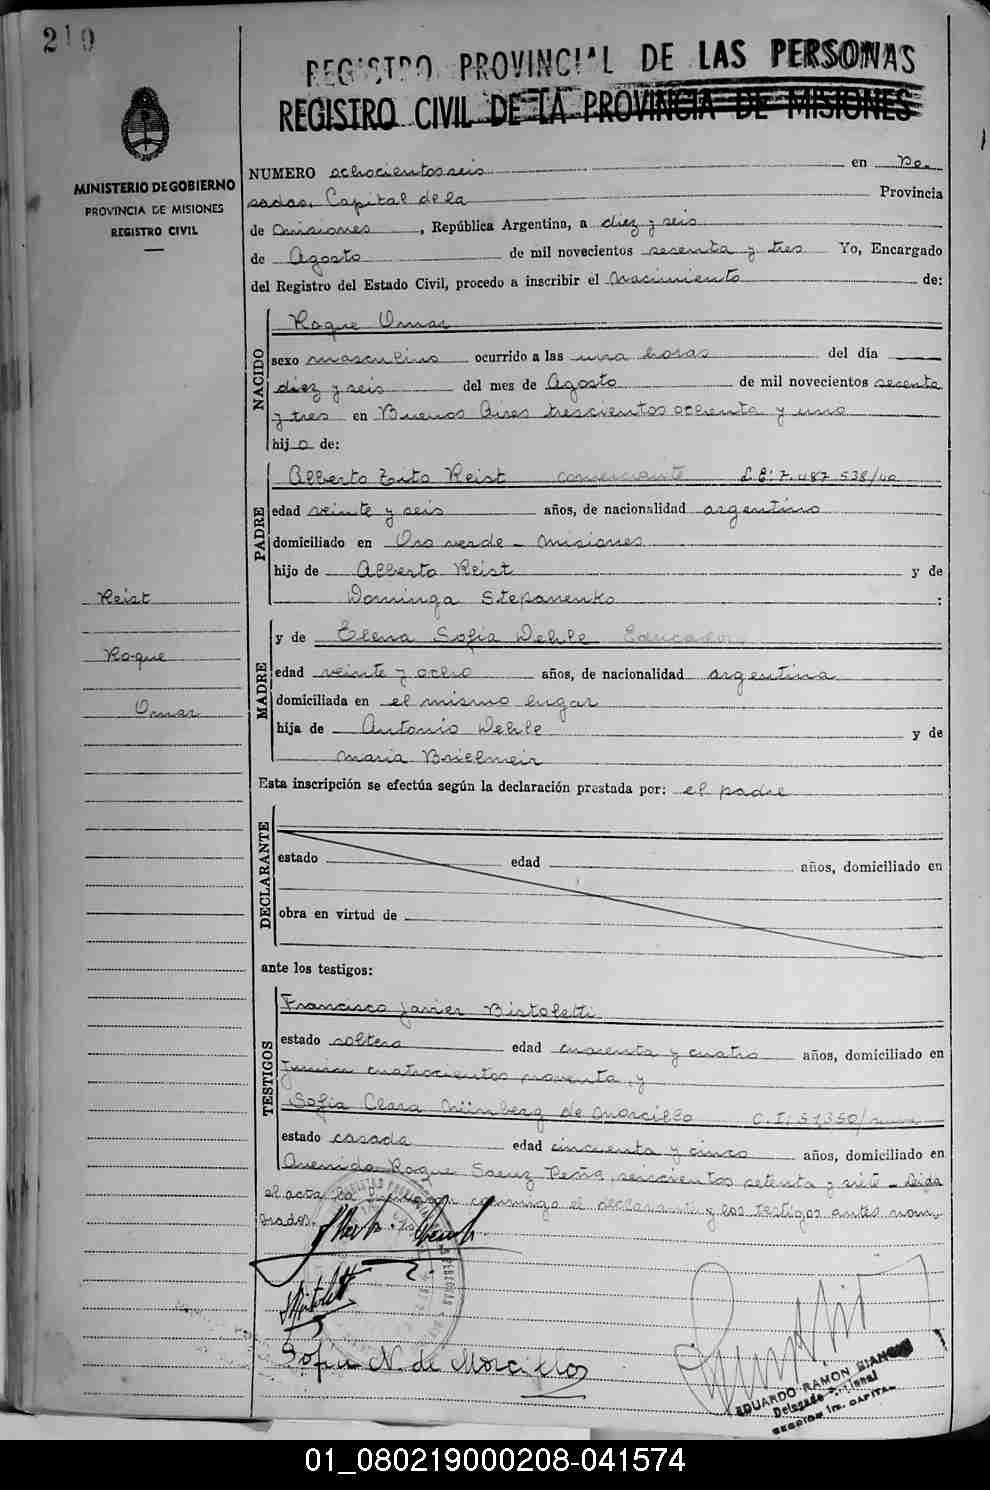 210
REGISTRO PROVINCIAL DE LAS PERSONAS
REGISTRO CIVIL DE LA PROVINCIA DE MISIONES
MINISTERIO DE GOBIERNO
PROVINCIA DE MISIONES
REGISTRO CIVIL
NUMERO ochocientos seis en Po-
sadas, Capital de la Provincia
de Misiones, República Argentina, a diez y seis
de Agosto de mil novecientos sesenta y tres Yo, Encargado
del Registro del Estado Civil, procedo a inscribir el nacimiento de:
NACIDO
Roque Omar
sexo masculino ocurrido a las una horas del día
diez y seis del mes de Agosto de mil novecientos sesenta
y tres en Buenos Aires trescientos ochenta y uno
hijo de:
PADRE
Alberto Tito Reist comerciante L.E: 7.487.538/
edad veinte y seis años, de nacionalidad argentino
domiciliado en Oro verde - Misiones
hijo de Alberto Reist y de
Dominga Stepanenko :
Reist
Roque
Omar
MADRE
y de Elena Sofia Dehle Educador
edad veinte y ocho años, de nacionalidad argentina
domiciliada en el mismo lugar
hija de Antonio Dehle y de
Maria Brielmeir
Esta inscripción se efectúa según la declaración prestada por: el padre
DECLARANTE
estado edad años, domiciliado en
obra en virtud de
ante los testigos:
TESTIGOS
Francisco Javier Bistoletti
estado soltero edad cuarenta y cuatro años, domiciliado en
Junin cuatrocientos noventa, y
Sofia Clara Nürnberg de Morcillo C.I: 51350/
estado casada edad cincuenta y cinco años, domiciliado en
Avenida Roque Saenz Peña, seiscientos setenta y siete - Leida
el acta la conmigo el declarante y los testigos antes nom-
brados.
Sofia N. de Morcillo
EDUARDO RAMON BIANCHI
Delegado
SECCION 1ra. CAPITAL
01_080219000208-041574